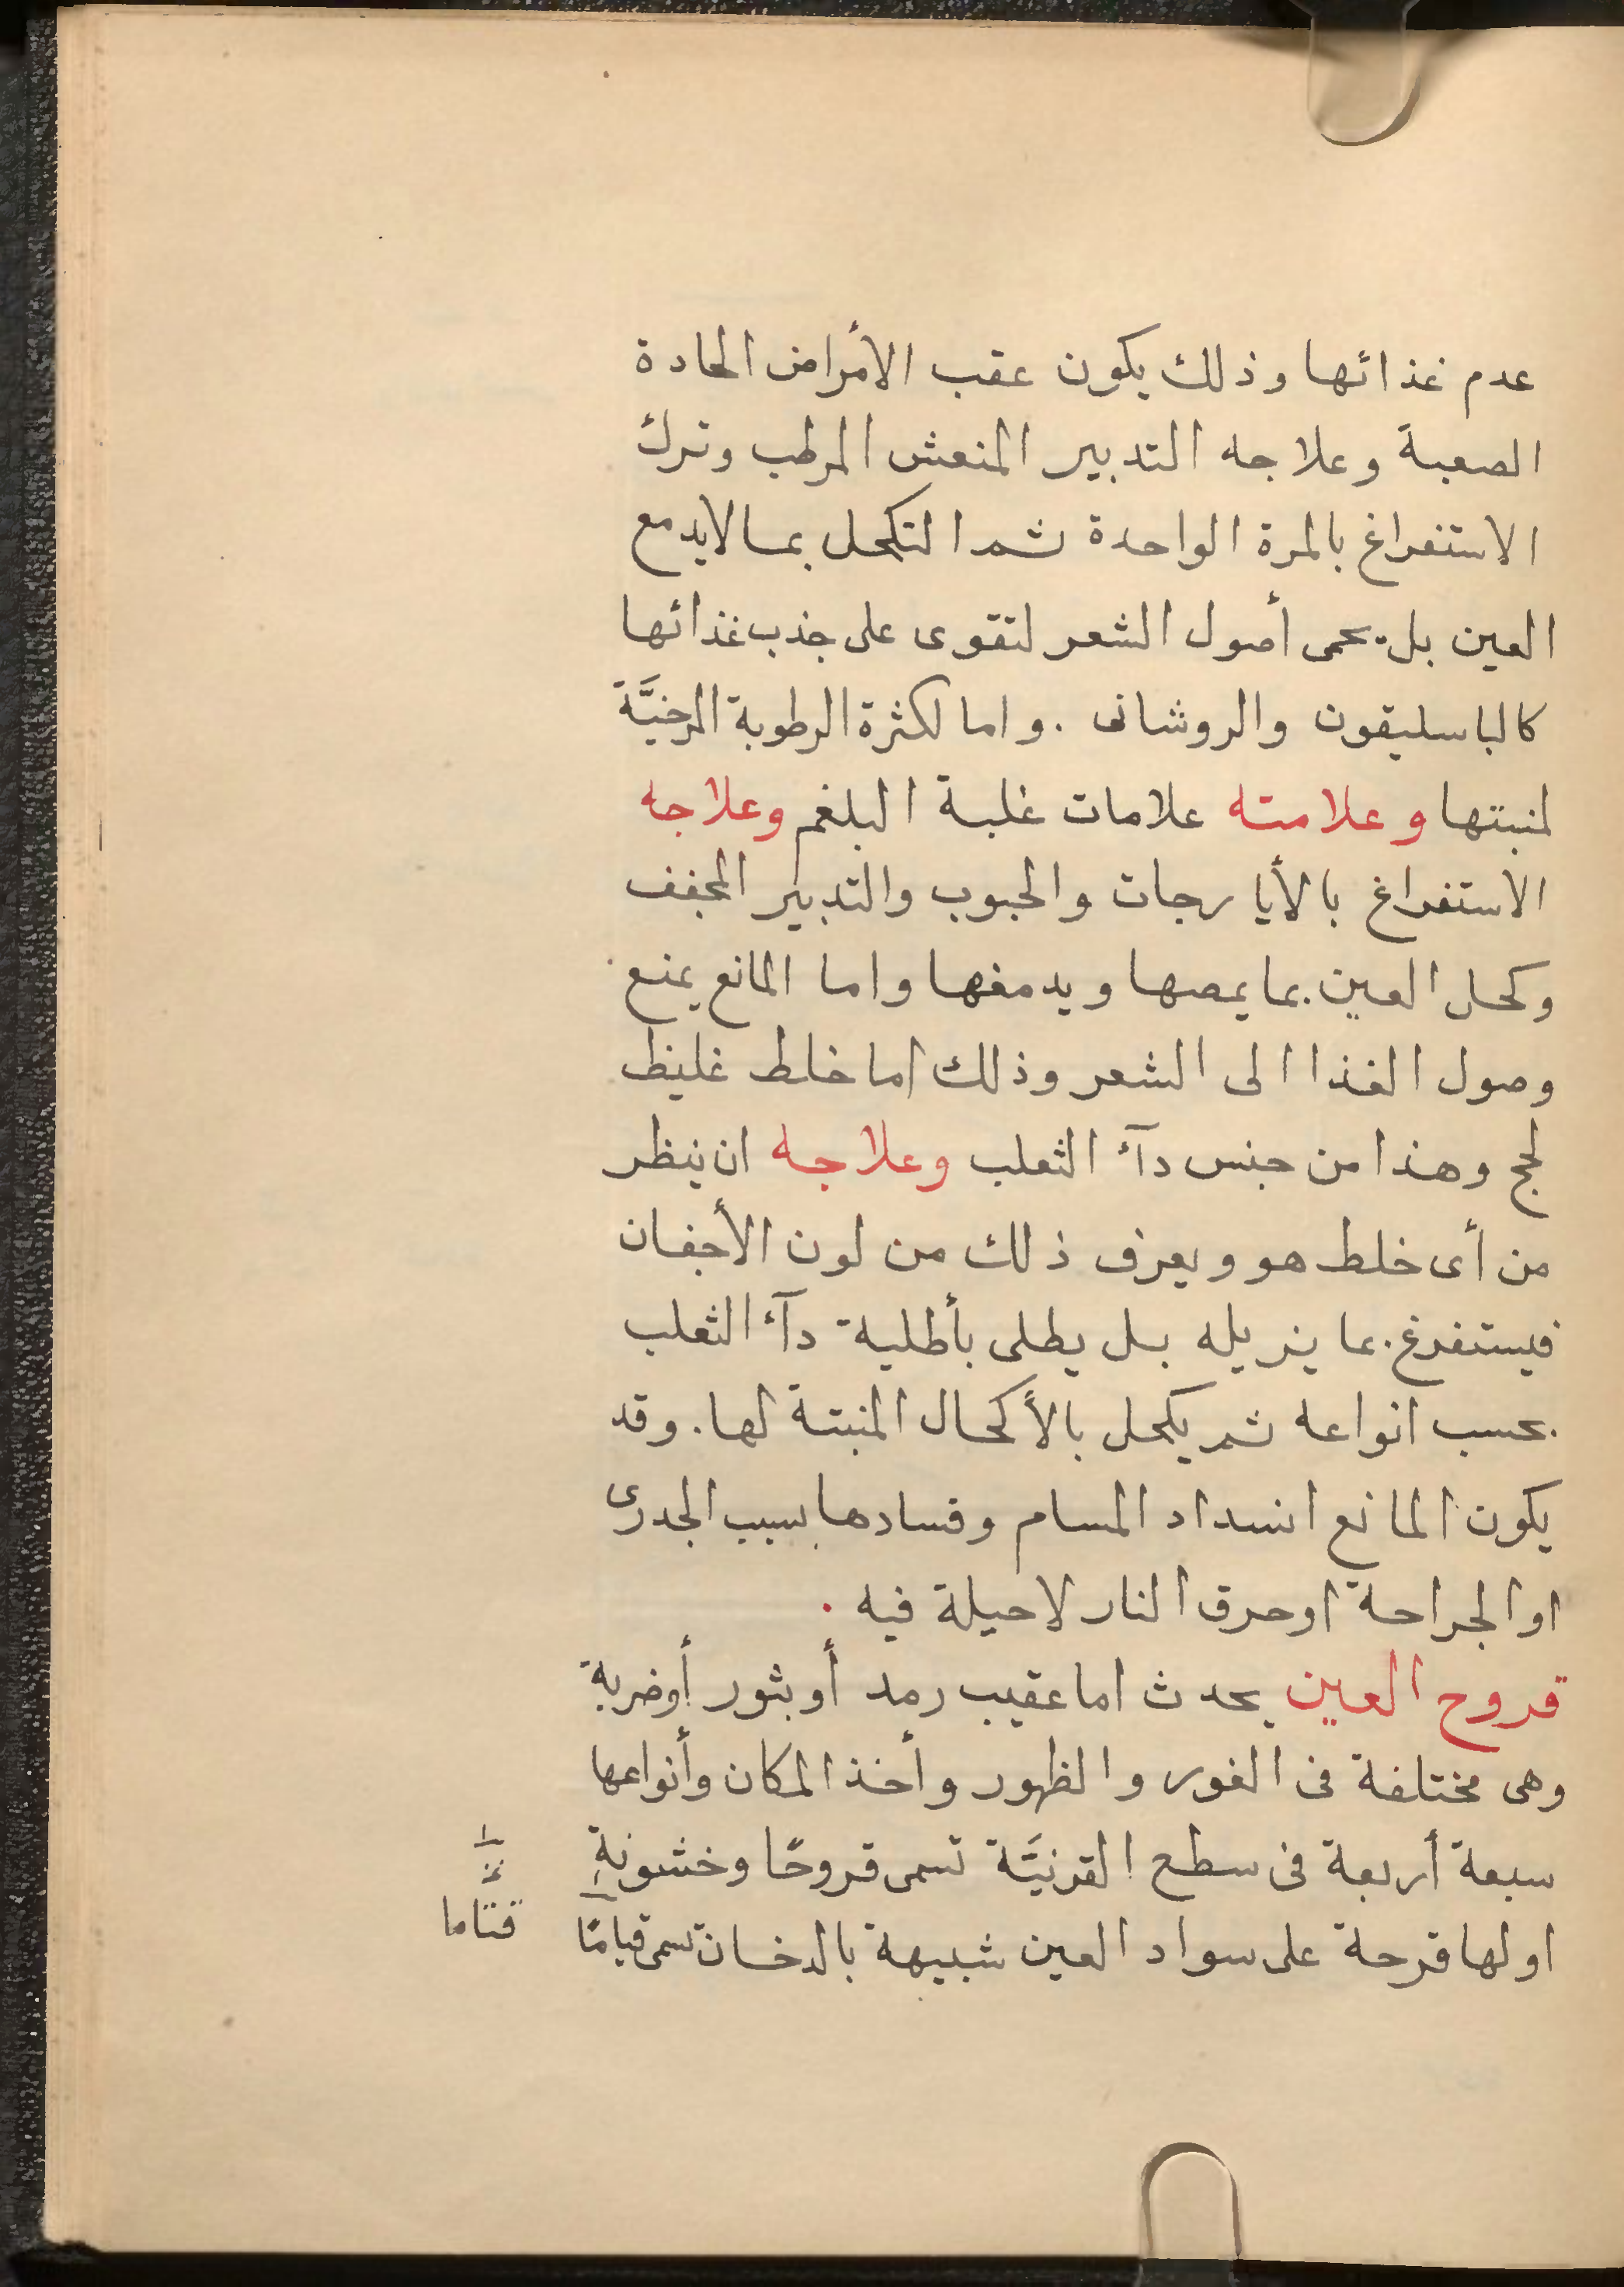 عدم غذائها وذلك يكون عقب الأمراض الحادة
الصعبة وعلاجه التدبير المنعش المرطب وترك
الاستفراغ بالمرة الواحدة ثم التكحل بما لا يدمع
العين بل يحمى أصول الشعر لتقوى على جذب غذائها
كالباسليقون والروشاى . واما لكثرة الرطوبة المرخيَّة
لمنبتها وعلامته علامات غلبة البلغم وعلاجه
الاستفراغ بالأيارجات والحبوب والتدبير المجفف
وكحل العين بما يمصها ويدمغها واما المانع يمنع
وصول الغذا الى الشعر وذلك اما خلط غليظ
لحج وهذا من جنس دآء الثعلب وعلاجه ان ينظر
من أى خلط هو ويعرف ذلك من لون الأجفان
فيستفرغ بما يزيله بل يطلى بأطلية دآء الثعلب
بحسب انواعه ثم يكحل بالأكحال المنبتة لها . وقد
يكون المانع انسداد المسام وفسادها بسبب الجدرى
او الجراحة او حرق النار لا حيلة فيه .
قروح العين يحدث اما عقيب رمد أو بثور أو ضربة
وهى مختلفة فى الغور والظهور وأخذ المكان وأنواعها
سبعة أربعة فى سطح القرنيَّة تسمى قروحًا وخشونة
اولها قرحة على سواد العين شبيهة بالدخان تسمى قيامًا
قتاما